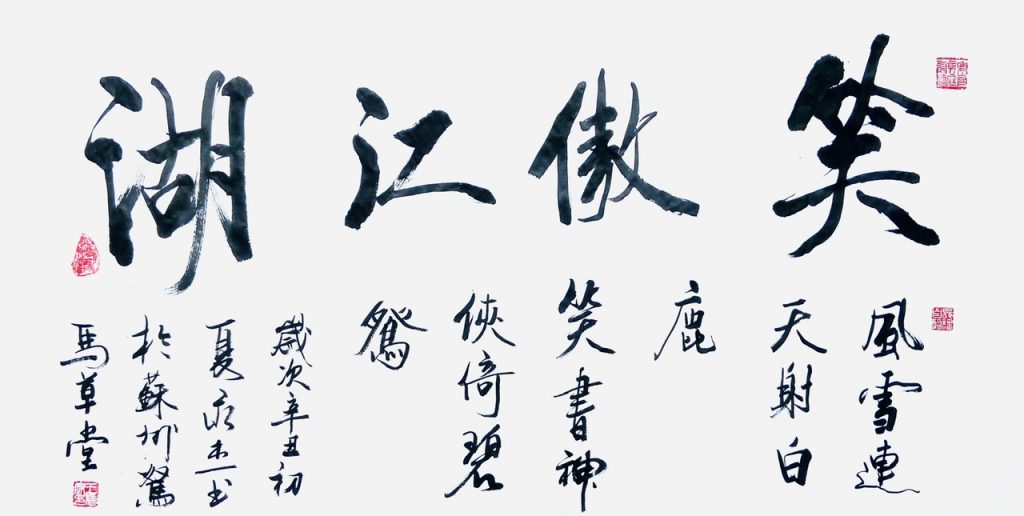 笑傲江湖
風雪連
天射白
鹿
笑書神
俠倚碧
鴛
歲次辛丑初
夏书
於蘇州駑
馬草堂